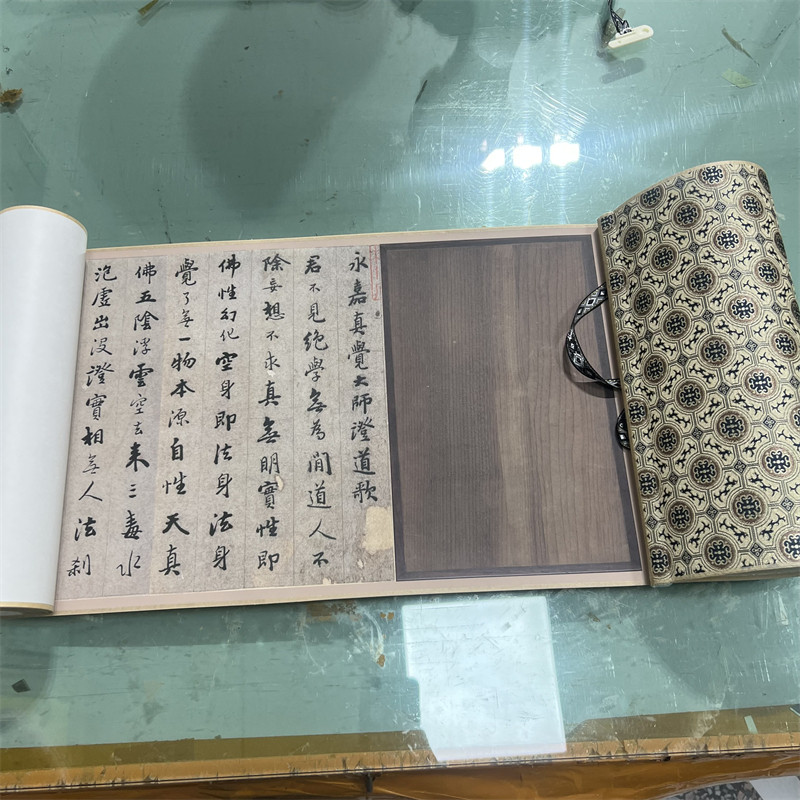 永嘉真覺大師證道歌
君不見絕學無為閒道人不
除妄想不求真無明實性即
佛性幻化空身即法身法身
覺了無一物本源自性天真
佛五陰浮雲空去來三毒水
泡虛出没證實相無人法刹